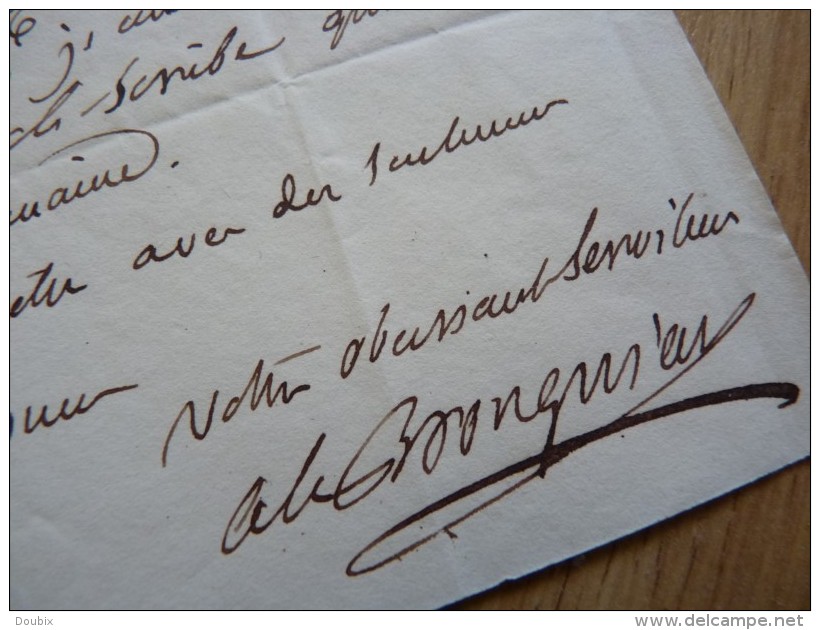 j'ai
de Scribe qu
emaine.
être avec des sentimens
votre obeissant Serviteur
Al. Brongniart
Doubix
delcampe.net